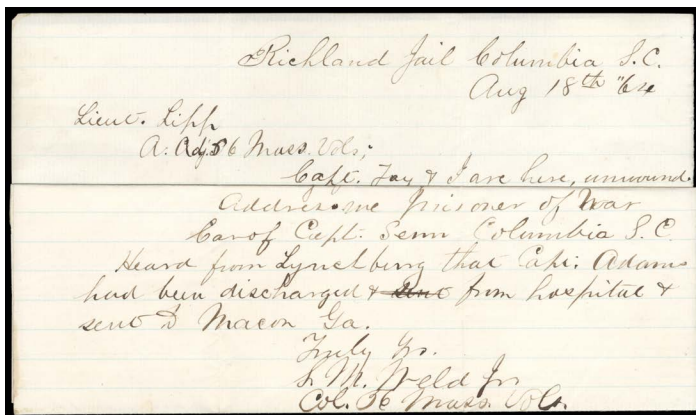 Richland Jail Columbia S.C.
Aug 18th "64
Lieut. Lipp
A. Adj. 56 Mass. Vols;
Capt. Fay & I are here, unwound.
Address me prisoner of War
Car of Capt. Senn Columbia S.C.
Heard from Lynchburg that Capt. Adams
had been discharged & sent from hospital &
sent to Macon Ga.
Truly Yrs.
S. M. Weld Jr.
Col. 56 Mass. Vols.